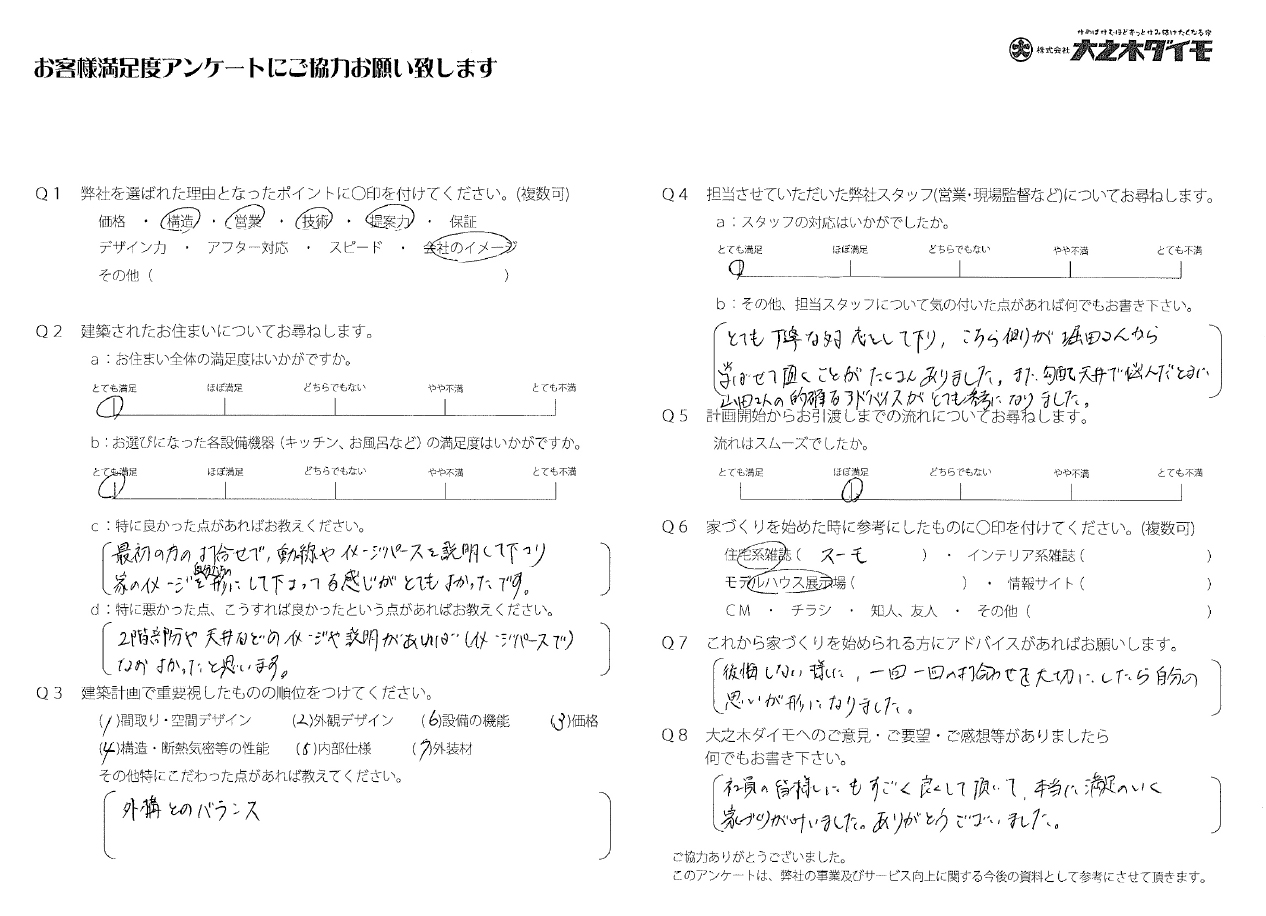 お客様満足度アンケートにご協力お願い致します
株式会社 大之木ダイモ
Q1 弊社を選ばれた理由となったポイントに〇印を付けてください。(複数可)
価格 ・ 構造 ・ 営業 ・ 技術 ・ 提案力 ・ 保証
デザイン力 ・ アフター対応 ・ スピード ・ 会社のイメージ
その他 ( )
Q2 建築されたお住まいについてお尋ねします。
a:お住まい全体の満足度はいかがですか。
とても満足 ほぼ満足 どちらでもない やや不満 とても不満
b:お選びになった各設備機器(キッチン、お風呂など)の満足度はいかがですか。
とても満足 ほぼ満足 どちらでもない やや不満 とても不満
c:特に良かった点があればお教えください。
最初の方の打合せで、動線やイメージパースを説明して下さり
自分たちの
家のイメージを形にして下さってる感じがとてもよかったです。
d:特に悪かった点、こうすれば良かったという点があればお教えください。
2階部分や天井などのイメージや説明があれば(イメージパースで)
なおよかったと思います。
Q3 建築計画で重要視したものの順位をつけてください。
(1)間取り・空間デザイン (2)外観デザイン (6)設備の機能 (3)価格
(4)構造・断熱気密等の性能 (5)内部仕様 (7)外装材
その他特にこだわった点があれば教えてください。
外構とのバランス
Q4 担当させていただいた弊社スタッフ(営業・現場監督など)についてお尋ねします。
a:スタッフの対応はいかがでしたか。
とても満足 ほぼ満足 どちらでもない やや不満 とても不満
b:その他、担当スタッフについて気の付いた点があれば何でもお書き下さい。
とても丁寧な対応をして下り、こちら側が堀田さんから
学ばせて頂くことがたくさんありました。また勾配天井で悩んだときに
山田さんの的確なアドバイスがとても参考になりました。
Q5 計画開始からお引渡しまでの流れについてお尋ねします。
流れはスムーズでしたか。
とても満足 ほぼ満足 どちらでもない やや不満 とても不満
Q6 家づくりを始めた時に参考にしたものに〇印を付けてください。(複数可)
住宅系雑誌( スーモ ) ・ インテリア系雑誌( )
モデルハウス展示場( ) ・ 情報サイト( )
CM ・ チラシ ・ 知人、友人 ・ その他( )
Q7 これから家づくりを始められる方にアドバイスがあればお願いします。
後悔しない様に、一回一回の打合わせを大切にしたら自分の
思いが形になりました。
Q8 大之木ダイモへのご意見・ご要望・ご感想等がありましたら
何でもお書き下さい。
社員の皆様にもすごく良くして頂いて、本当に満足のいく
家づくりが行いました。ありがとうございました。
ご協力ありがとうございました。
このアンケートは、弊社の事業及びサービス向上に関する今後の資料として参考にさせて頂きます。